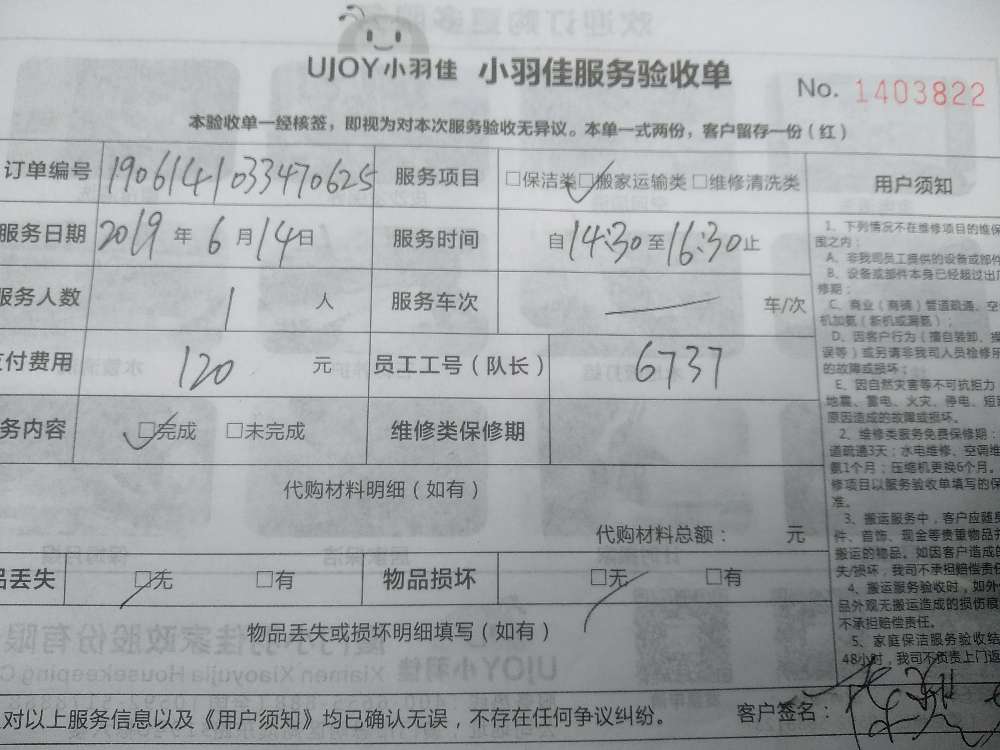 UJOY小羽佳 小羽佳服务验收单
No. 1403822
本验收单一经核签，即视为对本次服务验收无异议。本单一式两份，客户留存一份（红）
订单编号 190614103347​0625 服务项目 □保洁类 □搬家运输类 □维修清洗类
服务日期 2019 年 6 月 14 日 服务时间 自 14:30 至 16:30 止
服务人数 1 人 服务车次 — 车/次
付费用 120 元 员工工号（队长） 6737
务内容 □完成 □未完成 维修类保修期
代购材料明细（如有）
代购材料总额： 元
品丢失 □无 □有 物品损坏 □无 □有
物品丢失或损坏明细填写（如有）
对以上服务信息以及《用户须知》均已确认无误，不存在任何争议纠纷。 客户签名：
用户须知
1、下列情况不在维修项目的维保
围之内：
A、非我司员工提供的设备或部件
B、设备或部件本身已经超过出厂
修期；
C、商业（商铺）管道疏通、空
机加氨（新机或漏氨）；
D、因客户行为（擅自装卸、操
误等）或另请非我司人员检修吊
的故障或损坏；
E、因自然灾害等不可抗拒力
地震、雷电、火灾、停电、短
原因造成的故障或损坏。
2、维修类服务免费保修期：
道疏通3天；水电维修、空调维
氨1个月；压缩机更换6个月。
修项目以服务验收单填写的保
准。
3、搬运服务中，客户应随身
件、首饰、现金等贵重物品
搬运的物品。如因客户造成的
失/损坏，我司不承担赔偿责任
4、搬运服务验收时，如外
品外观无搬运造成的损伤痕
不承担赔偿责任。
5、家庭保洁服务验收结
48小时，我司不负责上门返